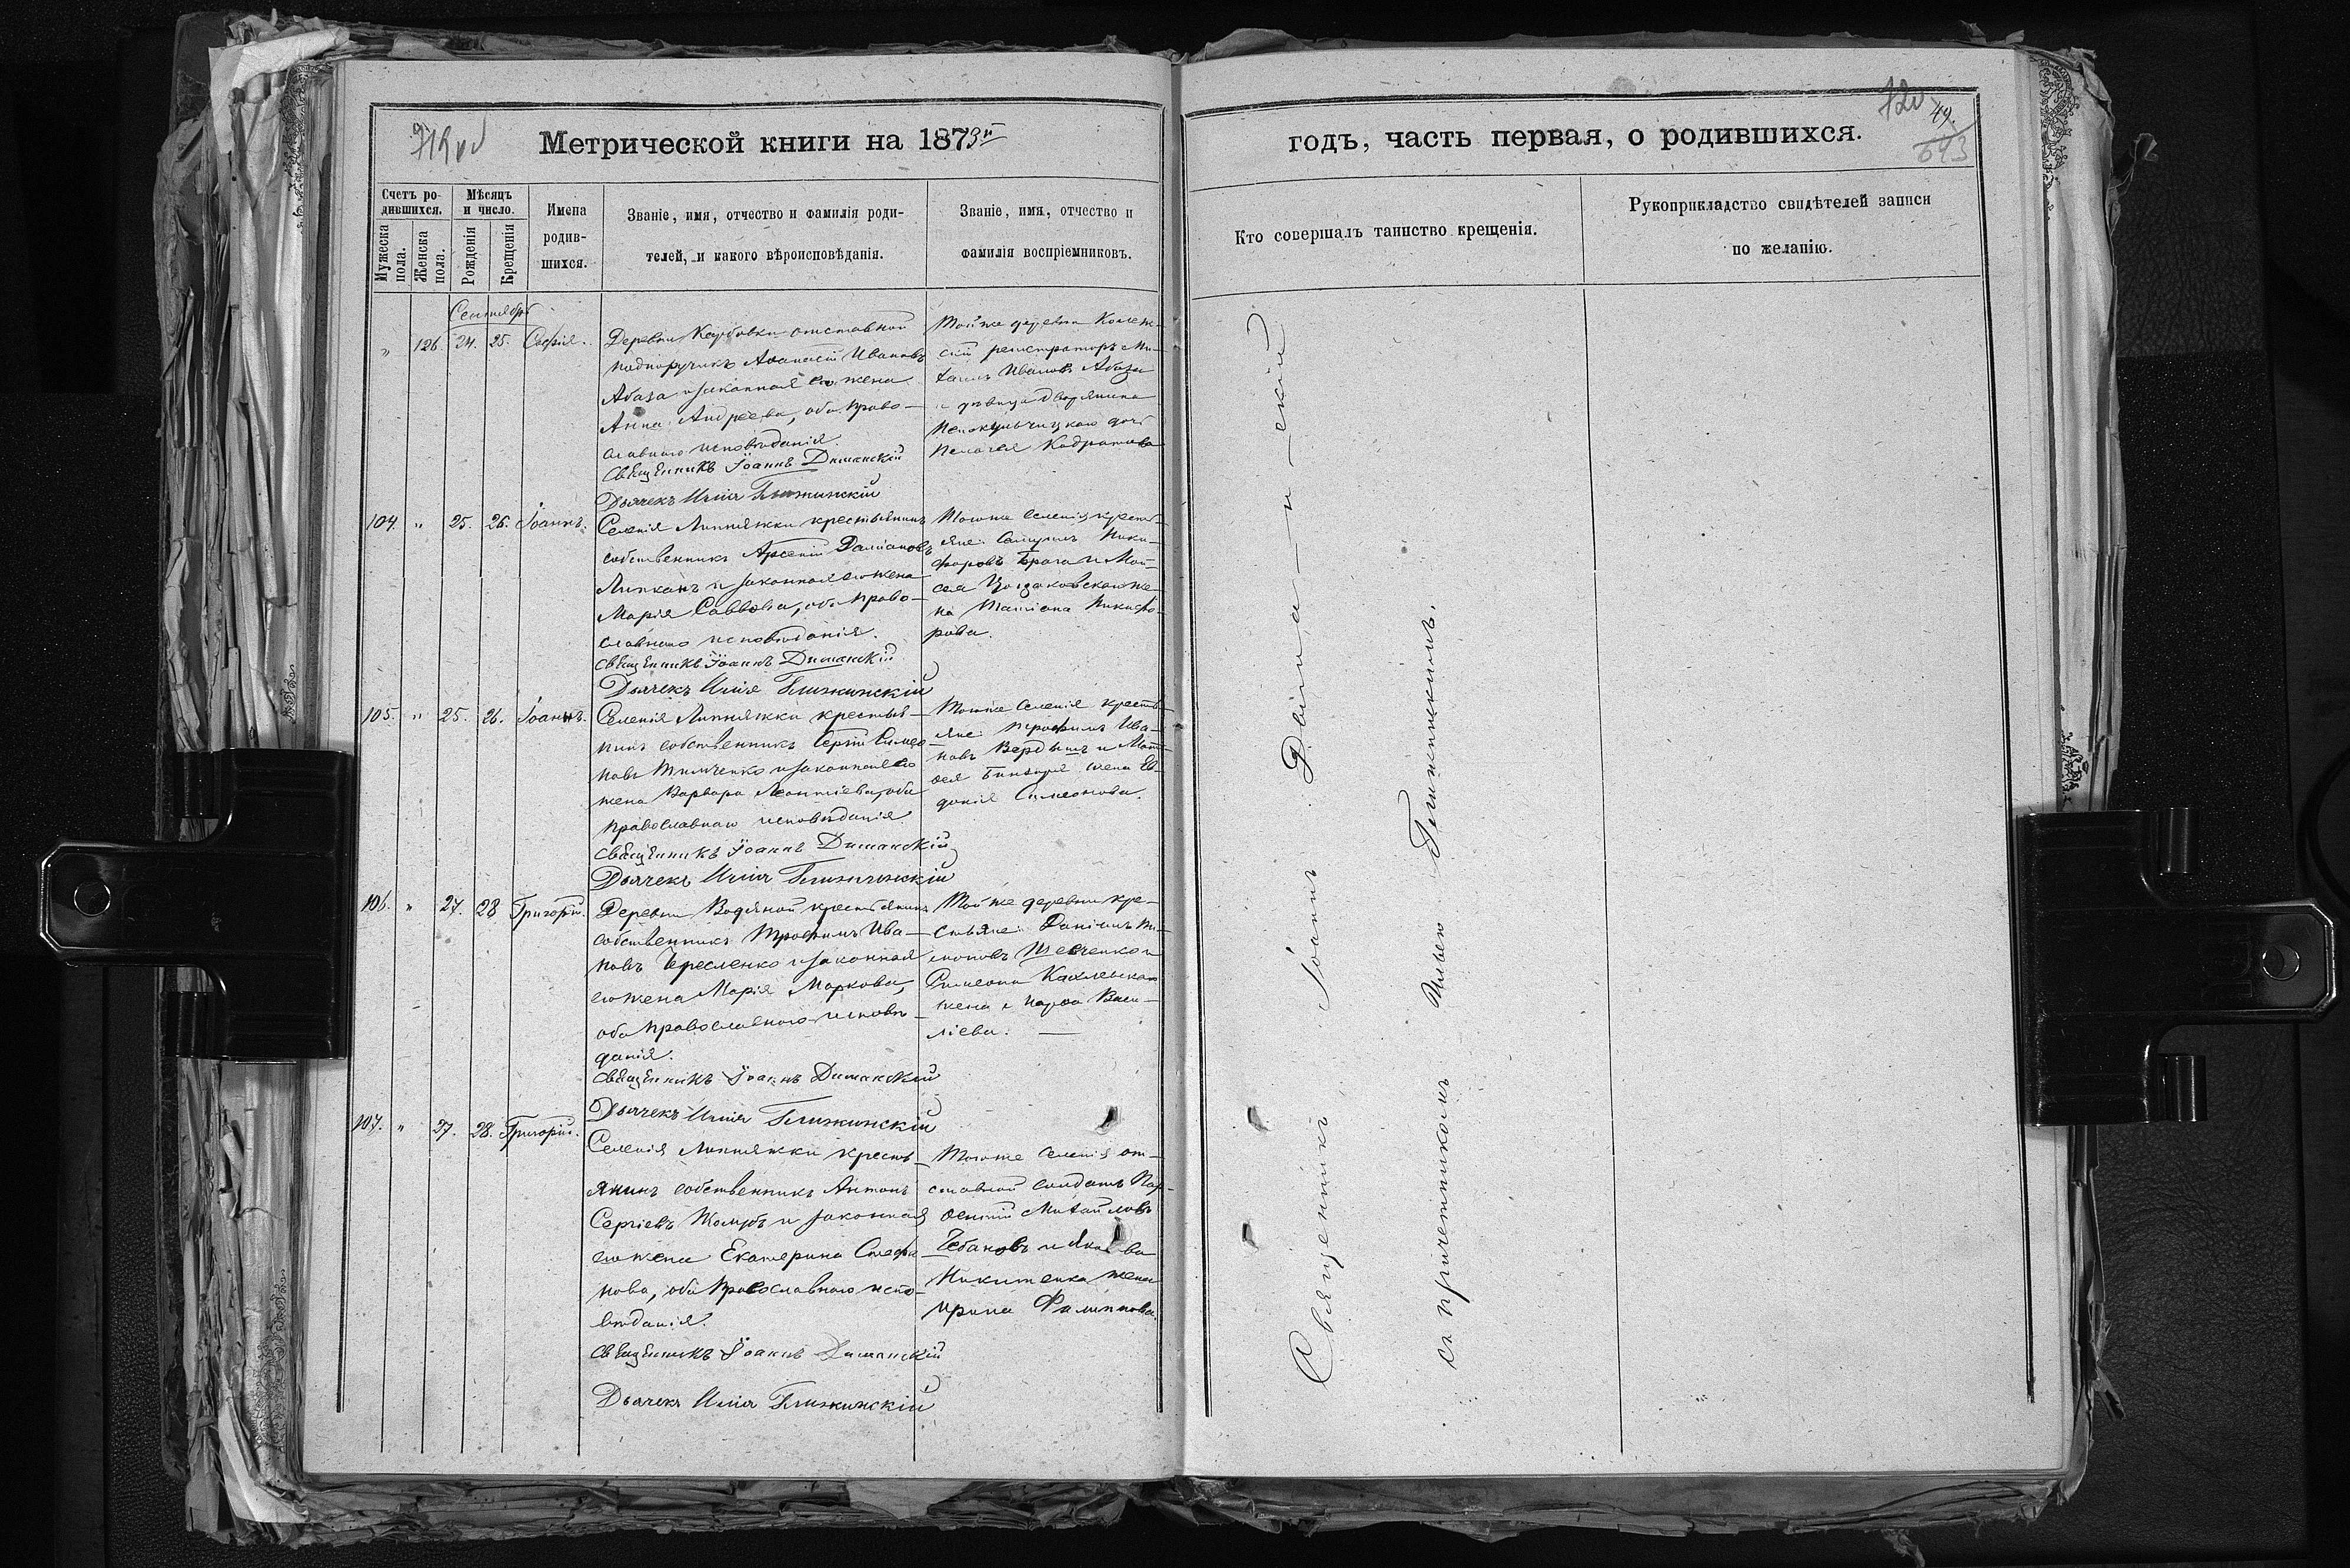 Метрической книги на 1873й
годъ, часть первая, о родившихся.
49.
Счетъ ро-
дившихся.
Мужеска
пола.
Женска
пола.
Мѣсяцъ
и число.
Рожденія
Крещенія
Имена
родив-
шихся.
Званіе, имя, отчество и фамилія роди-
телей, и какого вѣроисповѣданія.
Званіе, имя, отчество и
фамилія воспріемниковъ.
Кто совершалъ таинство крещенія.
Рукоприкладство свидѣтелей записи
по желанію.
Сентябрь
" 126. 24. 25. Софія.
Деревни отставной
подпоручикъ Аѳанасій Ивановъ
Абаза и законная его жена
Анна Андреева, оба право-
славнаго исповѣданія.
Священникъ Іоаннъ Диманскій
Дьячекъ Илія Ближинскій
Той же деревни Колеж-
скій регистраторъ Ми-
хаилъ Ивановъ Абаза
и дѣвица дворянина
дочь
Пелагея
104. " 25. 26. Іоаннъ.
Селенія Липняжки крестьянинъ
собственникъ Арсеній Даміановъ
Липканъ и законная его жена
Марія Саввова, оба право-
славнаго исповѣданія.
Священникъ Іоаннъ Диманскій
Дьячекъ Илія Ближинскій
Того же селенія кресть-
яне: Самуилъ Ники-
форовъ Брага и Мой-
сея же-
на Татіана Никифо-
рова.
105. " 25. 26. Іоаннъ.
Селенія Липняжки крестья-
нинъ собственникъ Сергій Симео-
новъ Тимченко и законная его
жена Варвара Леонтіева, оба
православнаго исповѣданія.
Священникъ Іоаннъ Диманскій
Дьячекъ Илія Ближинскій
Того же селенія кресть-
яне: Трофимъ Ива-
новъ Вердышъ и Мат-
ѳея жена Ев-
докія Симеонова.
106. " 27. 28 Григорій.
Деревни Водяной крестьянинъ
собственникъ Трофимъ Ива-
новъ Чересленко и законная
его жена Марія Маркова,
оба православнаго исповѣ-
данія.
Священникъ Іоаннъ Диманскій
Дьячекъ Илія Ближинскій
Той же деревни кре-
стьяне: Даніилъ Ти-
моновъ Шевченко и
Симеона
жена Марѳа Васи-
ліева.
107. " 27. 28. Григорій.
Селенія Липняжки кресть-
янинъ собственникъ Антонъ
Сергіевъ и законная
его жена Екатерина Стефа-
нова, оба православнаго испо-
вѣданія.
Священникъ Іоаннъ Диманскій
Дьячекъ Илія Ближинскій
Того же селенія от-
ставной солдатъ Пар-
ѳеній Михайловъ
Чебановъ и Якова
Никитенка жена
Ирина Филиппова.
Священникъ Іоаннъ Диманскій
съ причетникомъ Иліею Ближинскимъ.